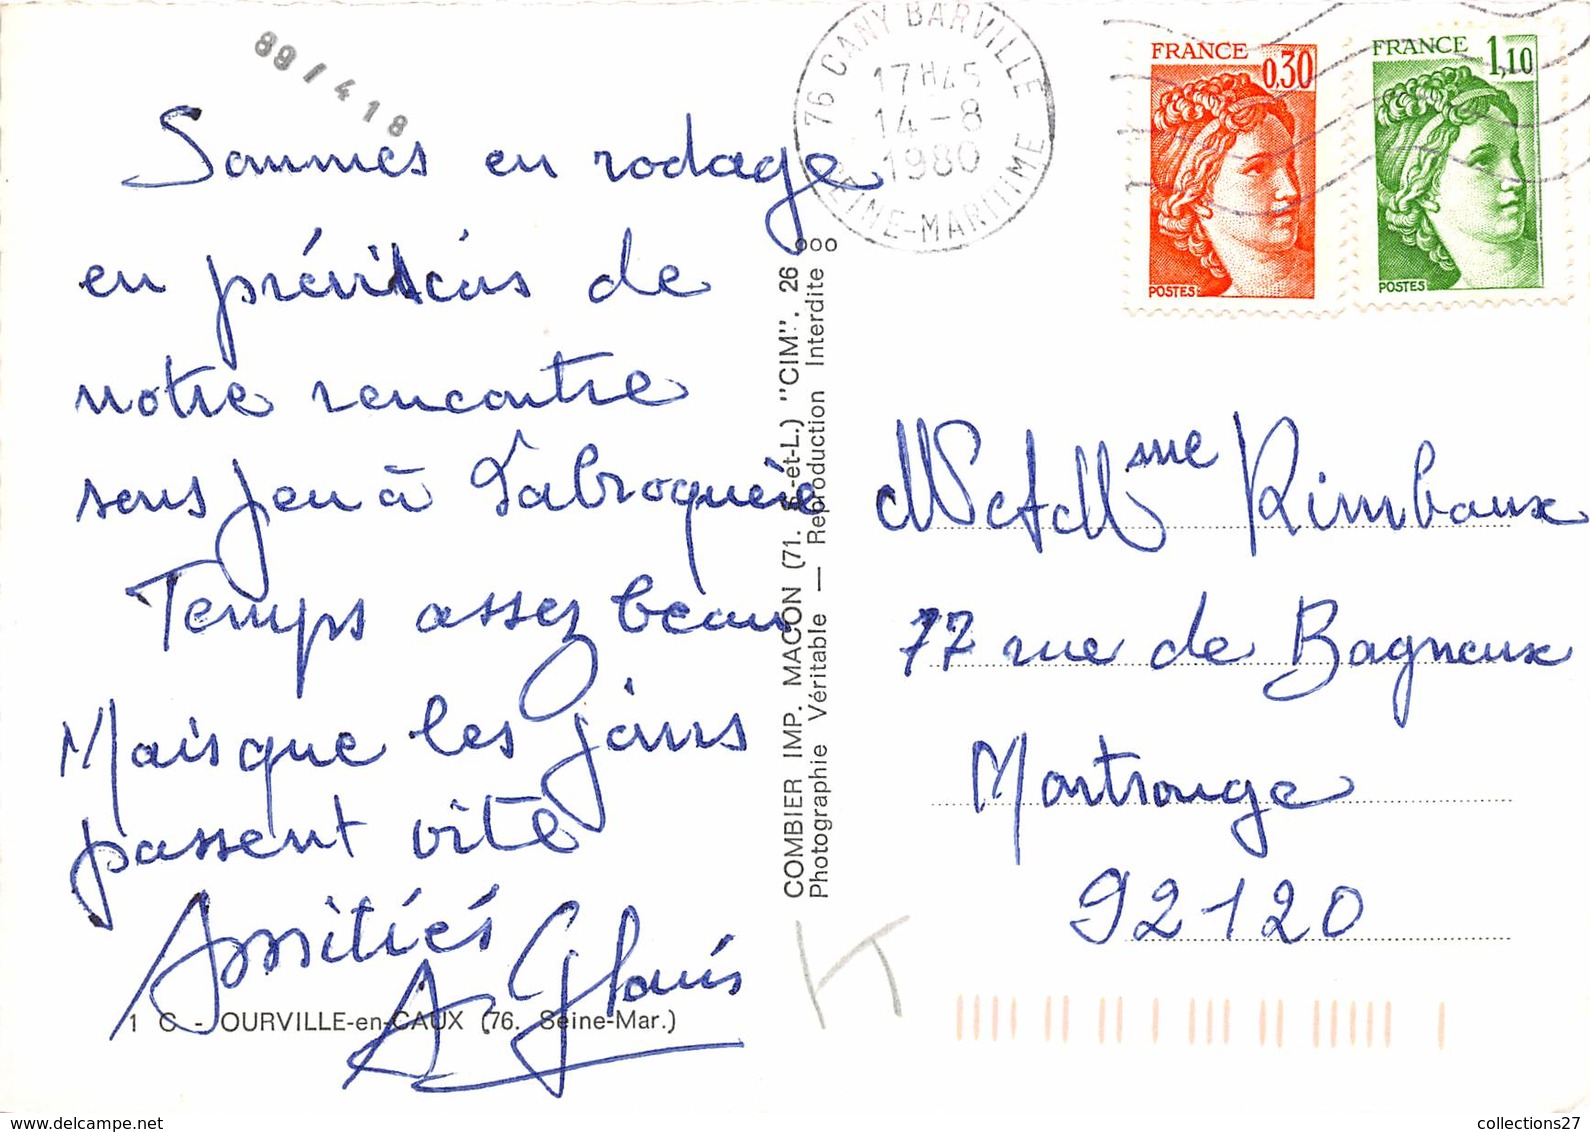 88/418
Sommes en rodage
en prévisions de
notre rencontre
sous peu à Labroquère
Temps assez beau
Mais que les jours
passent vite
Amitiés
76 CANY BARVILLE
17H45
14-8
1980
SEINE-MARITIME
FRANCE 0,30
POSTES
FRANCE 1,10
POSTES
COMBIER IMP. MACON (71. S.-et-L.) "CIM". 26
Photographie Véritable — Reproduction Interdite
Mr et Mme Rimbaux
77 rue de Bagneux
Montrouge
92120
1 C - OURVILLE-en-CAUX (76. Seine-Mar.)
collections27